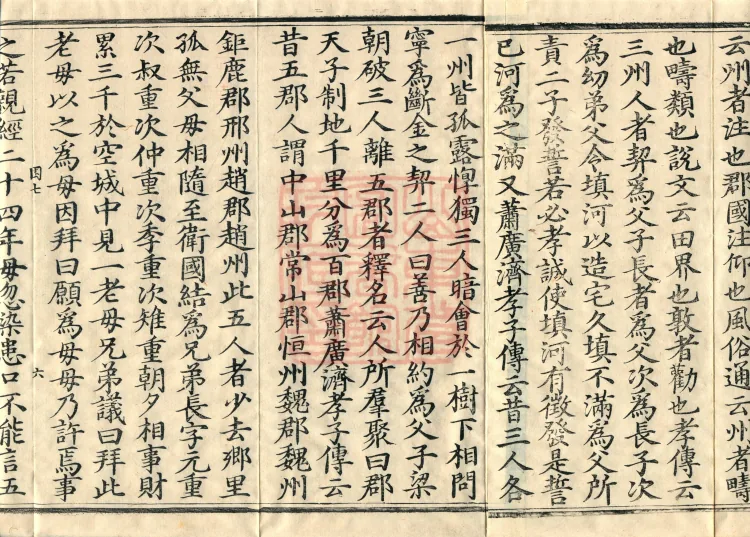 云州者注也郡國注仰也風俗通云州者疇
也疇類也說文云田界也敦者勸也孝傳云
三州人者契爲父子長者爲父次爲長子次
爲幼弟父令填河以造宅久填不滿爲父所
責二子發誓若必孝誠使填河有徴發是誓
已河爲之滿又蕭廣濟孝子傳云昔三人各
一州皆孤露惸獨三人暗會於一樹下相問
寧爲斷金之契二人曰善乃相約爲父子梁
朝破三人離五郡者釋名云人所羣聚曰郡
天子制地千里分爲百郡蕭廣濟孝子傳云
昔五郡人謂中山郡常山郡恒州魏郡魏州
鉅鹿郡邢州趙郡趙州此五人者少去鄉里
孤無父母相隨至衛國結爲兄弟長字元重
次叔重次仲重次季重次雉重朝夕相事財
累三千於空城中見一老母兄弟議曰拜此
老母以之爲母因拜曰願爲母母乃許焉事
因七 六
之若親經二十四年母忽染患口不能言五